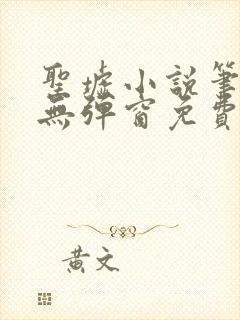 聖墟小說筆
無彈窗免費
黃文